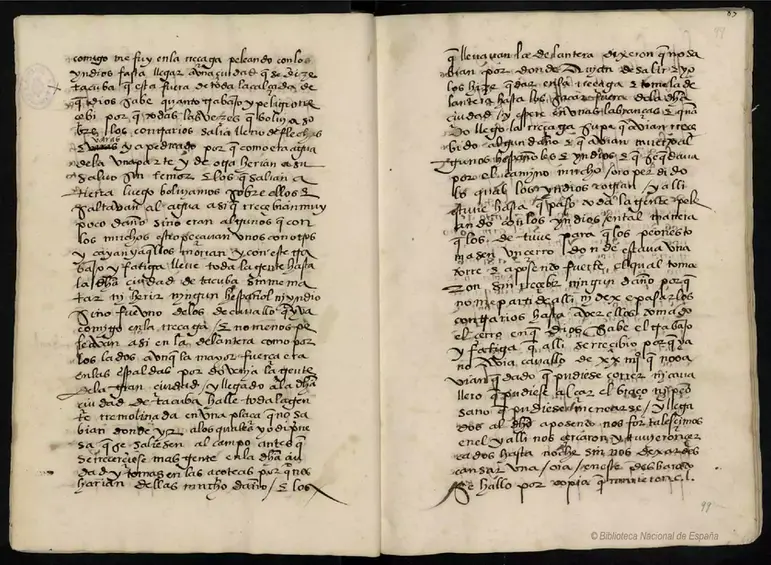 comigo me fuy en la rrecaga peleando con los
yndios fasta llegar a vna cuidad que se dize
tacuba que esta fuera de toda la calçada de
q̃ dios sabe quanto trabajo y peligro rre
cebi por q̃ todas las vezes q̃ bolvia so
bre los contrarios salia lleno de flechas
varas
E y apedreado por q̃ como era agua
de la vna parte y de otra herian a su
saluo sin temor E los q̃ salian a
tierra luego bolviamos sobre ellos E
saltavan al agua asi q̃ rrecebian muy
poco daño sino eran algunos q̃ con
los muchos estropeçavan vnos con otros
y cayan y aq̃llos morian y con este tra
bajo y fatiga lleve toda la gente hasta
la dha ciudad de tacuba sin me ma
tar ni herir ningun hespañol ni yndio
sino fue vno de los de cavallo q̃ yva
comigo en la rrecaga / E no menos pe
leavan asi en la delantera como por
los lados avnq̃ la mayor fuerça era
en las espaldas por do venia la gente
de la gran ciudad / y llegado a la dha
ciudad de tacuba halle toda la gen
te rremolinada en vna plaça q̃ no sa
bian donde yr a los quales yo di prie
sa q̃ se saliesen al campo antes q̃
se rrecreciese mas gente en la dha ciu
dad y tomasen las acoteas por q̃ nos
harian dellas mucho daño / E los
87
q̃ llevavan la delantera dixeron q̃ no sa
bian por donde avian de salir E yo
los hize quedar en la rrecaga E tome la de
lantera hasta los sacar fuera de la dha
ciudad / y espere en vnas labranças E quan
do llego la rrecaga supe q̃ avian rrece
bido algun daño E q̃ avian muerto al
gunos hespañoles E yndios E q̃ se quedava
por el camino mucho / oro perdido
lo qual los yndios cogian / y alli
estuve hasta q̃ paso toda la gente pele
ando con los yndios en tal manera
q̃ los detuve para q̃ los peones to
masen vn cerro donde estava vna
torre E aposento fuerte el qual toma
ron sin recebir ningun daño por q̃
no me parti de alli ni dexe pasar los
contrarios hasta aver ellos tomado
el cerro en q̃ dios sabe el trabajo
y fatiga q̃ alli se rrecibio por q̃ ya
no avia cavallo de xx iiij q̃ nos a
vian q̃dado q̃ pudiese correr ni cava
llero q̃ pudiese alçar el braço ni peon
sano q̃ pudiese menearse / y llega
dos al dho aposento nos fortalescimos
en el y alli nos cercaron y tuvieron cer
cados hasta noche sin nos dexar des
cansar vna / ora / en este desbarato
se hallo por copia q̃
99
© Biblioteca Nacional de España